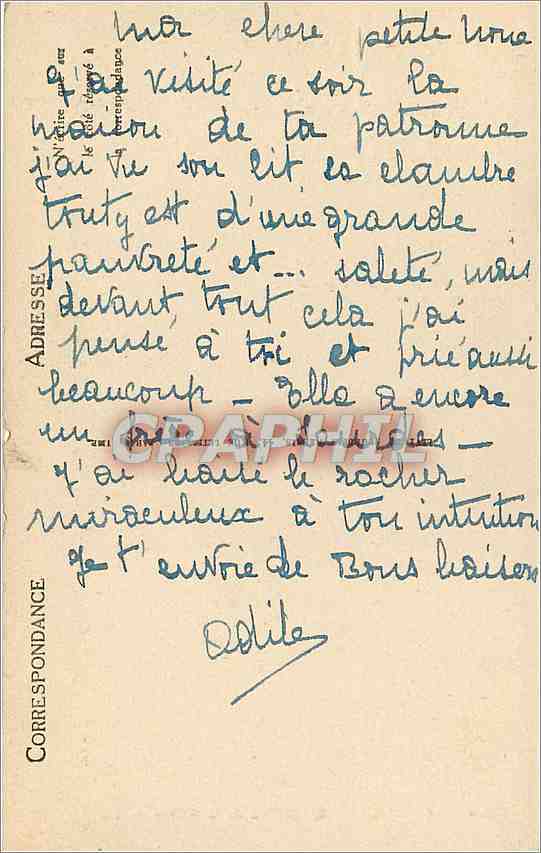 Ma chere petite None
J'ai visité ce soir la
maison de ta patronne
j'ai vu son lit sa chambre
tout y est d'une grande
pauvreté et... saleté, mais
devant tout cela j'ai
pensé à toi et prié aussi
beaucoup - Elle a encore
un frère à Lourdes -
J'ai baisé le rocher
miraculeux à ton intention
Je t'envoie de Bons baisers
Odile
CORRESPONDANCE
ADRESSE
N'écrire que sur
le côté réservé à
la correspondance
CPAPHIL